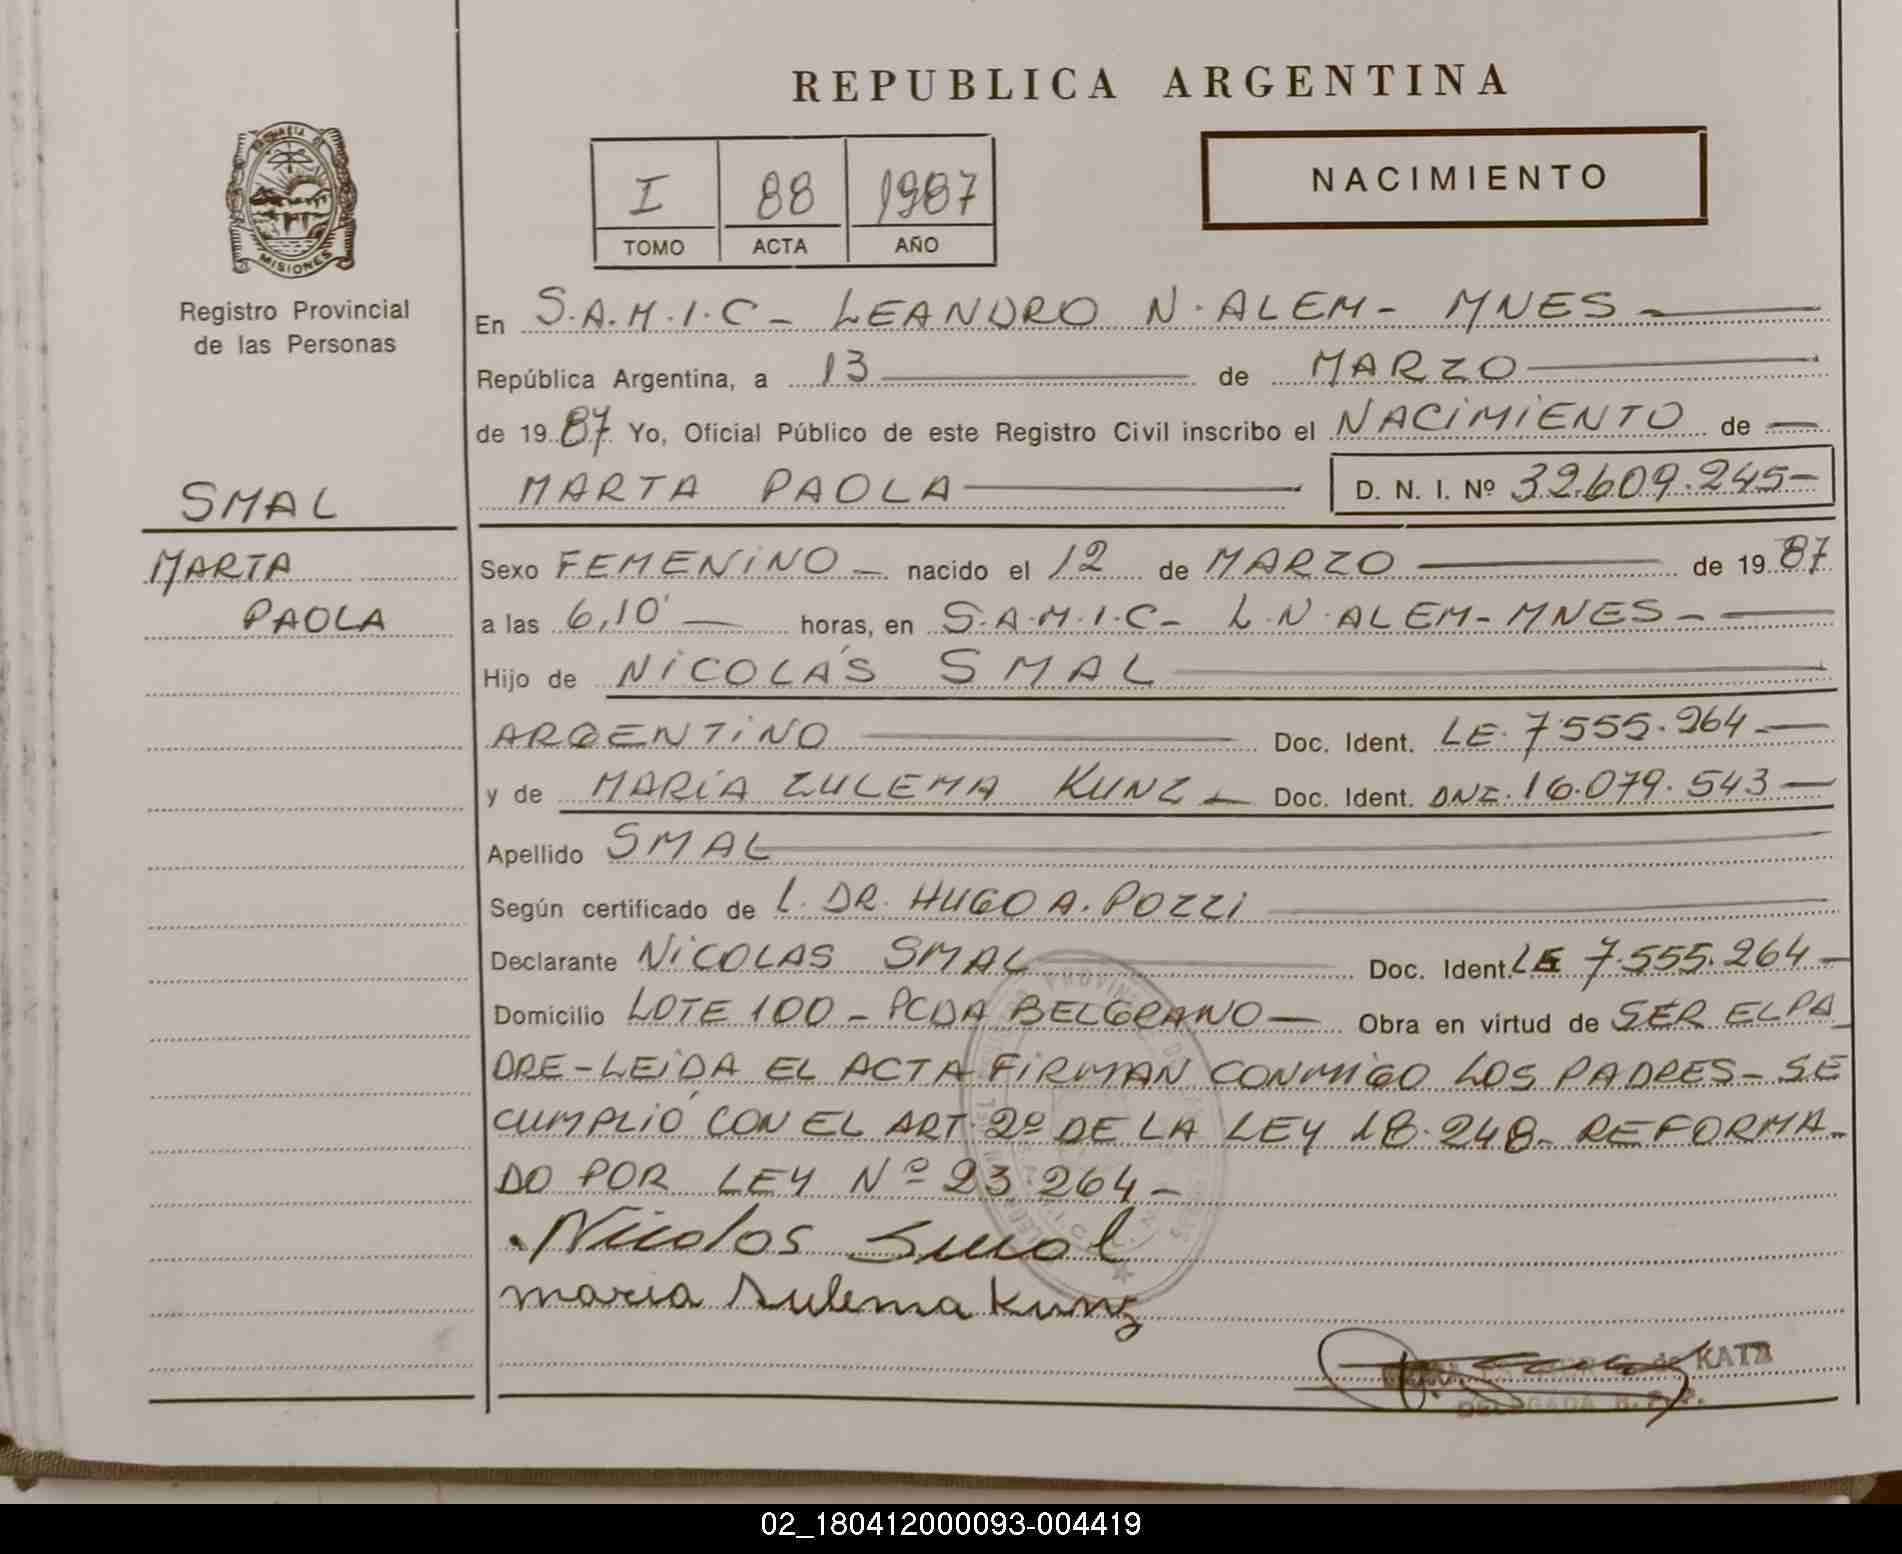 REPUBLICA ARGENTINA
MISIONES
Registro Provincial
de las Personas
I 88 1987
TOMO ACTA AÑO
NACIMIENTO
En S.A.M.I.C- LEANDRO N. ALEM- MNES
República Argentina, a 13 de MARZO
de 1987 Yo, Oficial Público de este Registro Civil inscribo el NACIMIENTO de
MARTA PAOLA D. N. I. Nº 32.609.245-
SMAL
MARTA
PAOLA
Sexo FEMENINO - nacido el 12 de MARZO de 1987
a las 6,10' horas, en S.A.M.I.C- L.N. ALEM- MNES-
Hijo de NICOLÁS SMAL
ARGENTINO Doc. Ident. LE. 7.555.264-
y de MARÍA ZULEMA KUNZ - Doc. Ident. DNI. 16.079.543-
Apellido SMAL
Según certificado de L. DR. HUGO A. POZZI
Declarante NICOLAS SMAL Doc. Ident. LE 7.555.264-
Domicilio LOTE 100 - PCDA BELGRANO- Obra en virtud de SER EL PA
DRE-LEIDA EL ACTA FIRMAN CONMIGO LOS PADRES- SE
CUMPLIÓ CON EL ART. 2º DE LA LEY 18.248- REFORMA-
DO POR LEY Nº 23 264-
Nicolas Smal
maria Sulema Kunz
de KATZ
DELEGADA
02_180412000093-004419